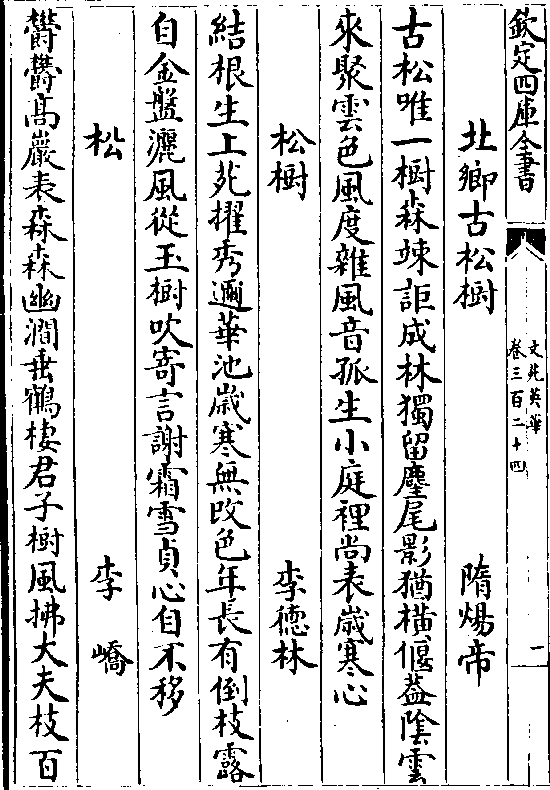 欽定四庫全書
文苑英華
卷三百二十四
一
北鄉古松樹　隋煬帝
古松唯一樹森竦詎成林獨留麈尾影猶橫偃葢陰雲
來聚雲色風度雜風音孤生小庭裡尚表歲寒心
松樹　李德林
結根生上苑擢秀邇華池歲寒無改色年長有倒枝露
自金盤灑風從玉樹吹寄言謝霜雪貞心自不移
松　李嶠
鬱鬱高巖表森森幽澗垂鶴棲君子樹風拂大夫枝百